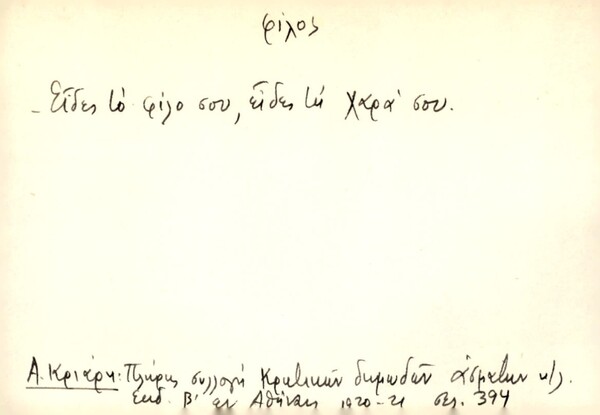 φίλος
- Εἶδες τὸ φίλο σου, εἶδες τὴ χαρά σου.
Α. Κριάρη: Πλήρης συλλογή Κρητικῶν δημωδῶν ᾀσμάτων κ/λ.
ἔκδ. Β' ἐν Ἀθήναις 1920-21 σελ. 394